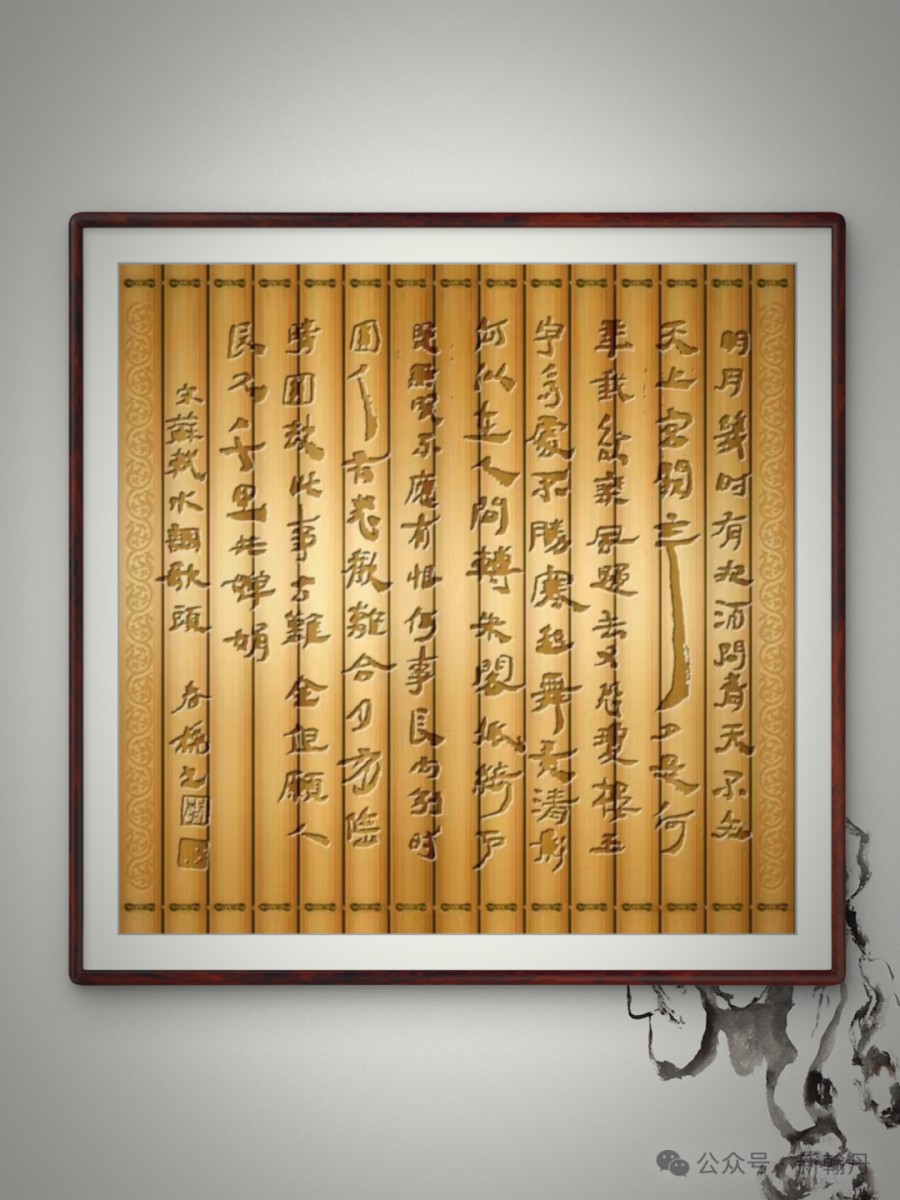 明月幾时有把酒問青天不知
天上宫闕今夕是何
年我欲乘风歸去又恐瓊楼玉
宇高處不勝寒起舞弄清影
何似在人間轉朱閣低綺户
照無眠不應有恨何事長向别时
圆人有悲歡離合月有陰
晴圆缺此事古難全但願人
長久千里共嬋娟
宋蘇軾水調歌頭 春
公众号 · 新翰丹